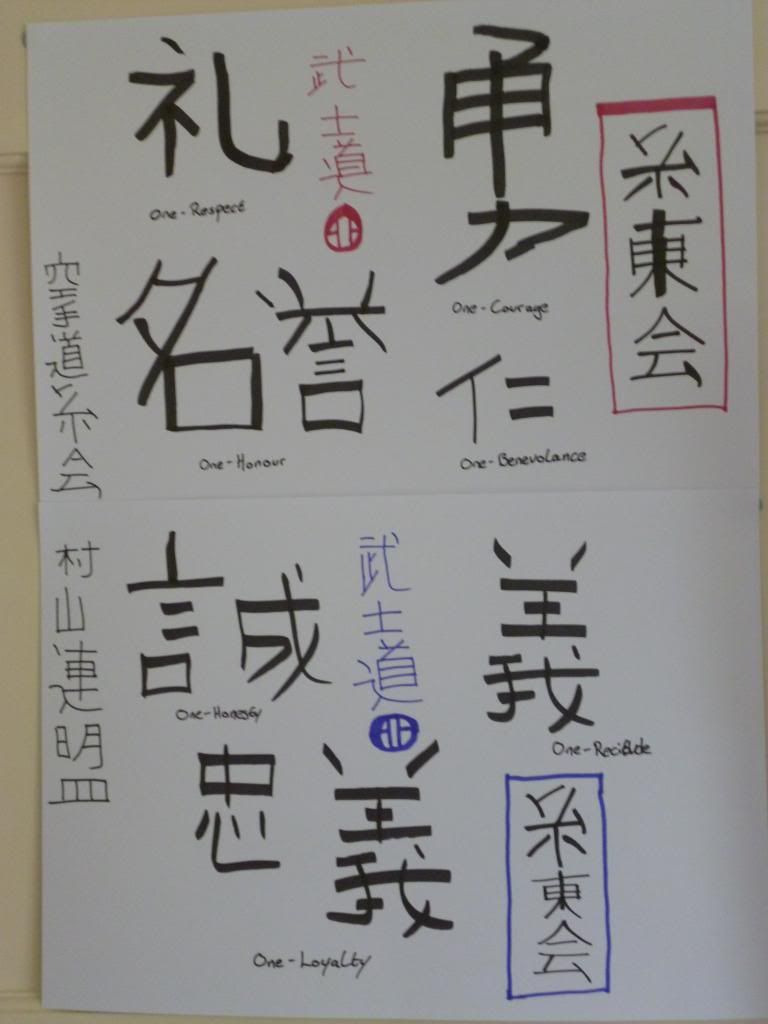 礼
One-Respect
武士道
勇
One-Courage
糸東会
空手道糸会
名誉
One-Honour
仁
One-Benevolance
村山連明皿
誠
One-Honesty
武士道
義
One-Recitude
忠義
One-Loyalty
糸東会